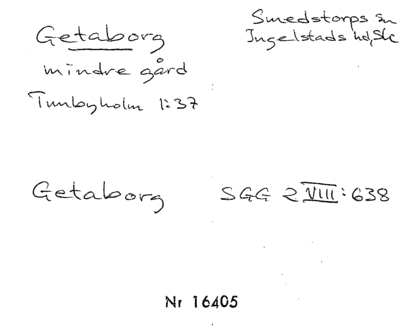 Getaborg
Smedstorps sn
Ingelstads hd, Sk
mindre gård
Tunbyholm 1:37
Getaborg SGG 2 VIII: 638
Nr 16405